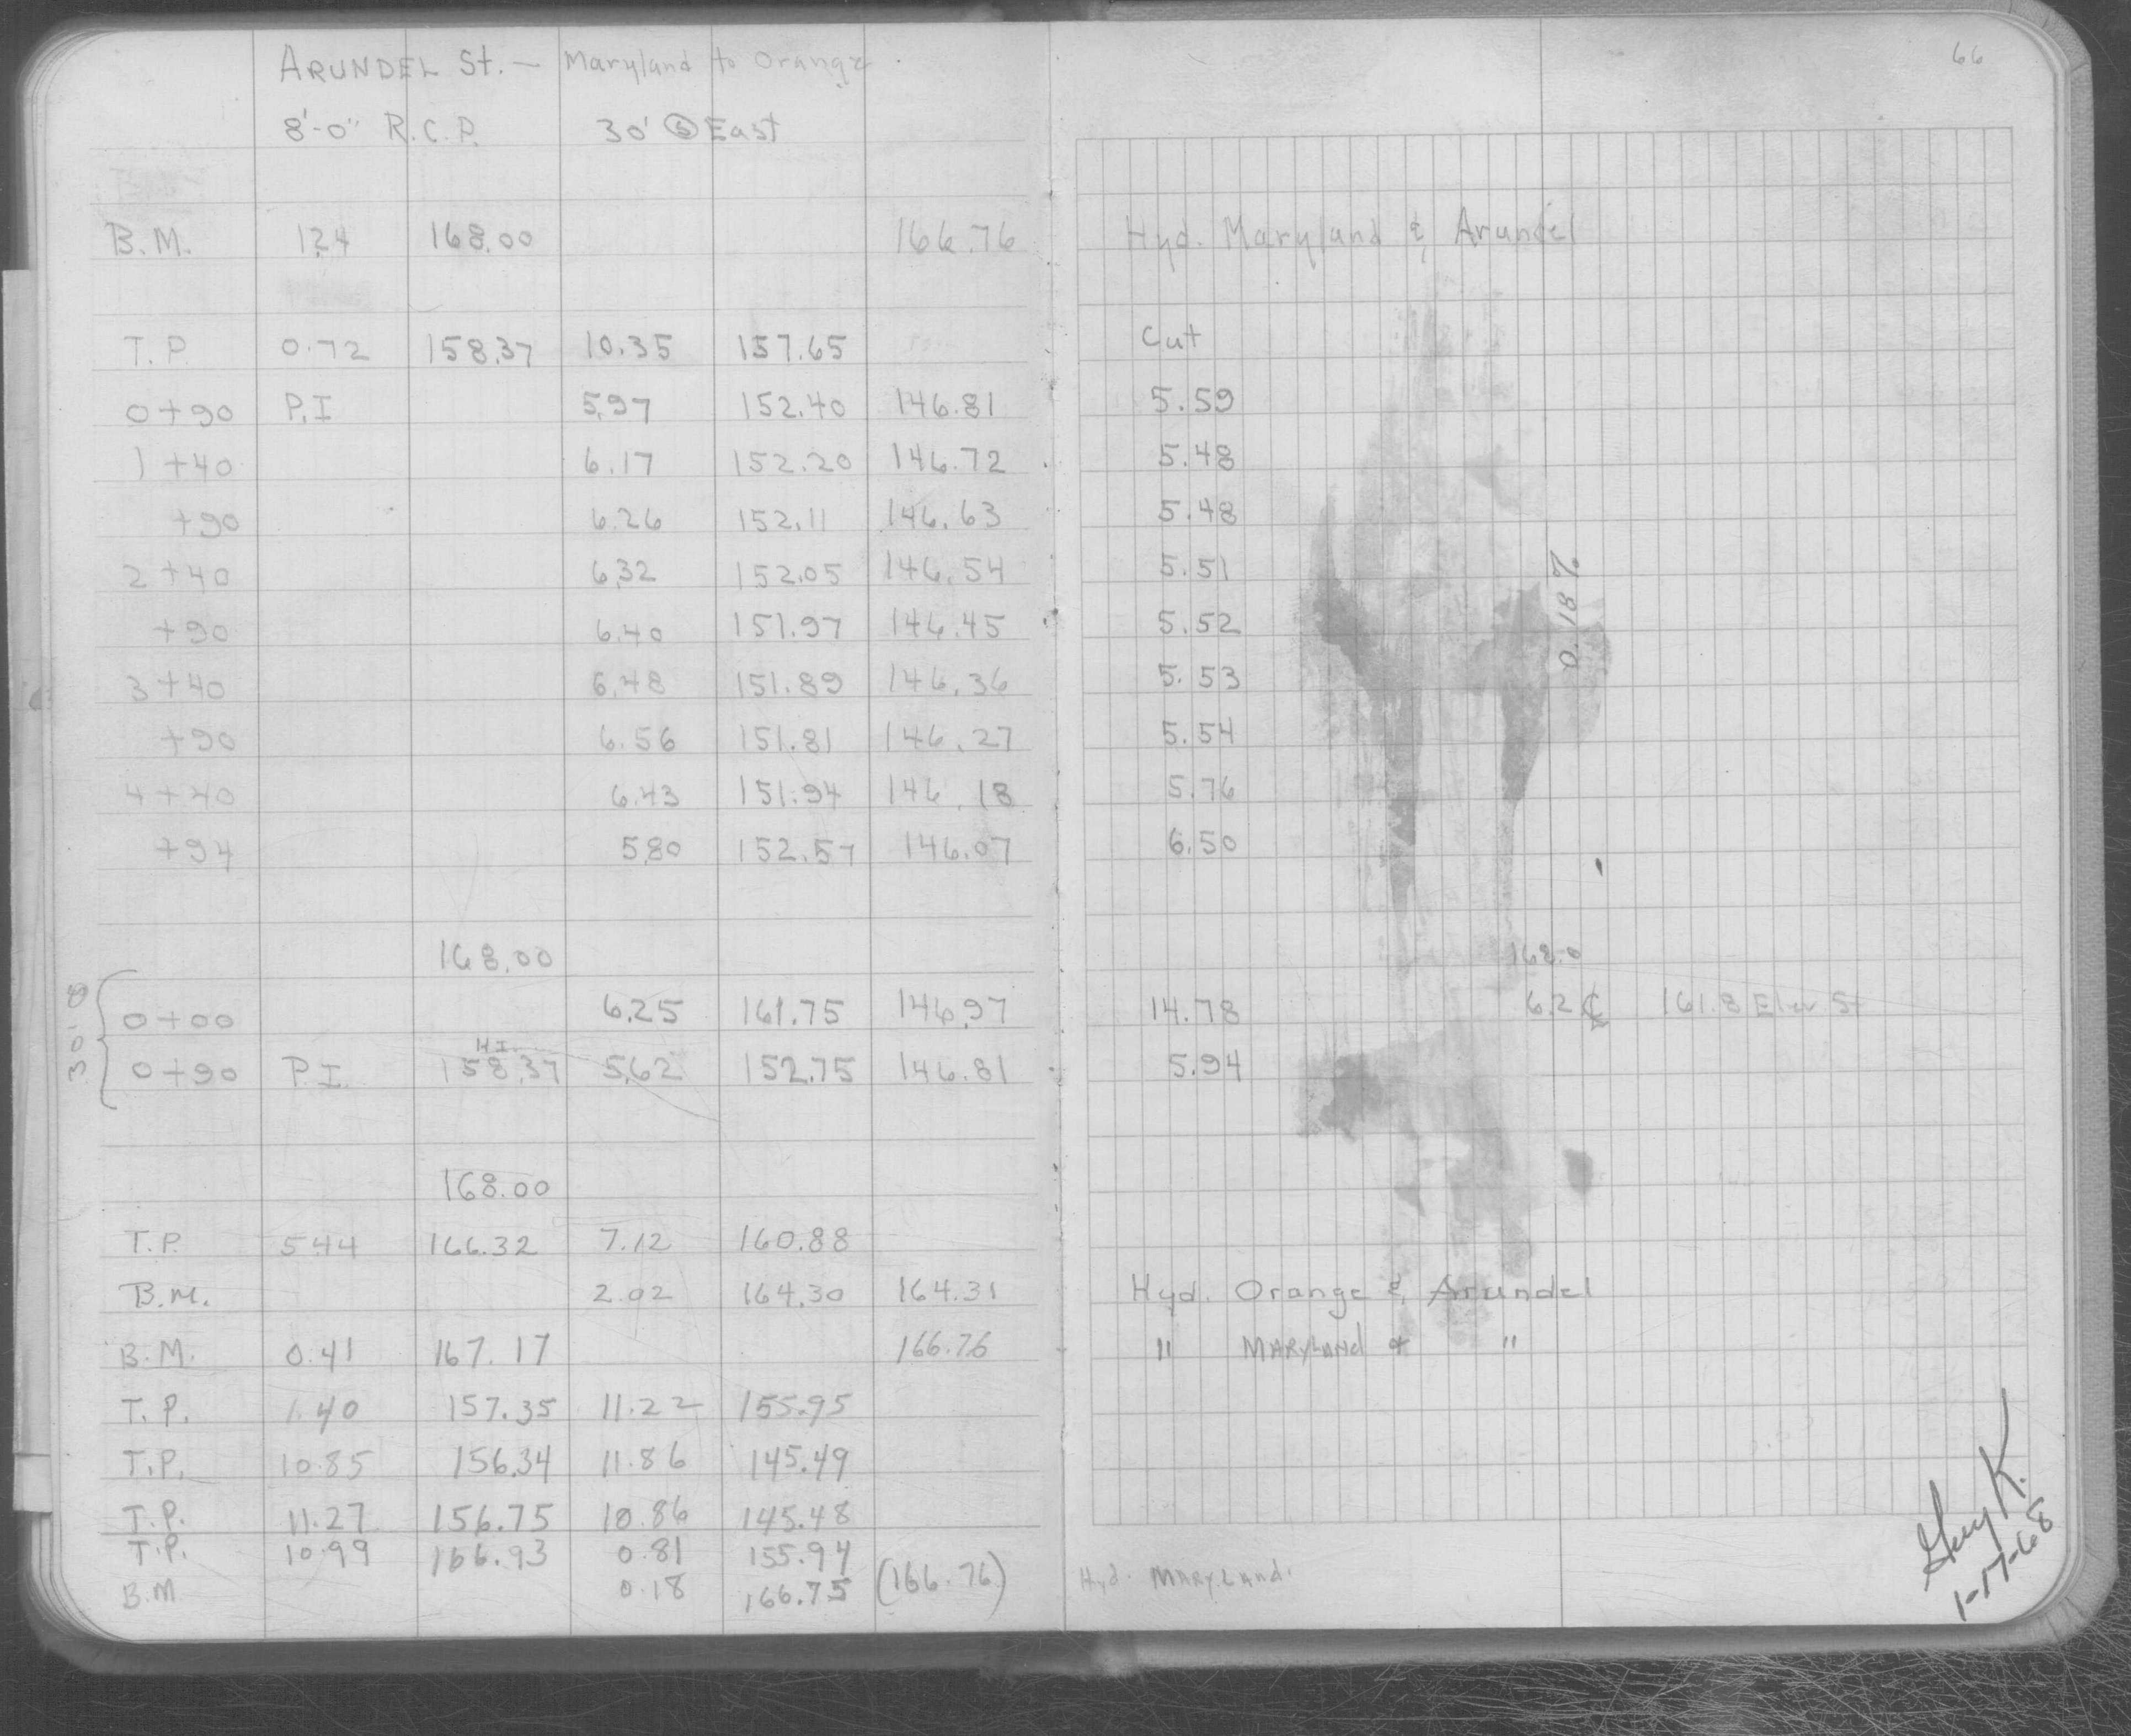 66
ARUNDEL St. — Maryland to Orange
8'-0" R.C.P. 30' East
B.M. 1.24 168.00 166.76 Hyd. Maryland & Arundel
T.P. 0.72 158.37 10.35 157.65 Cut
0+90 P.I 5.97 152.40 146.81 5.59
1+40 6.17 152.20 146.72 5.48
+90 6.26 152.11 146.63 5.48
2+40 6.32 152.05 146.54 5.51
+90 6.40 151.97 146.45 5.52
3+40 6.48 151.89 146.36 5.53
+90 6.56 151.81 146.27 5.54
4+40 6.43 151.94 146.18 5.76
+94 5.80 152.57 146.07 6.50
168.00 168.0
0+00 6.25 161.75 146.97 14.78 6.2 ℄ 161.8 Elev. St
H.I.
0+90 P.I. 158.37 5.62 152.75 146.81 5.94
168.00
T.P. 5.44 166.32 7.12 160.88
B.M. 2.02 164.30 164.31 Hyd. Orange & Arundel
B.M. 0.41 167.17 166.76 " MARYLAND & "
T.P. 1.40 157.35 11.22 155.95
T.P. 10.85 156.34 11.86 145.49
T.P. 11.27 156.75 10.86 145.48
T.P. 10.99 166.93 0.81 155.94
B.M 0.18 166.75 (166.76) Hyd. MARYLAND.
K.
1-17-68